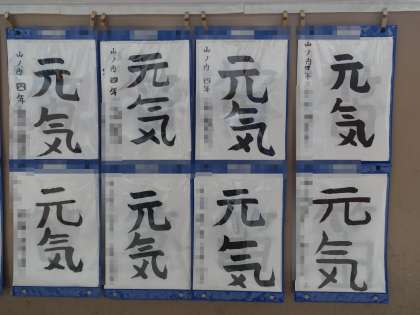 元気
山ノ内 四年
元気
山ノ内 四年
元気
山ノ内 四年
元気
山ノ内
元気
元気
元気
元気